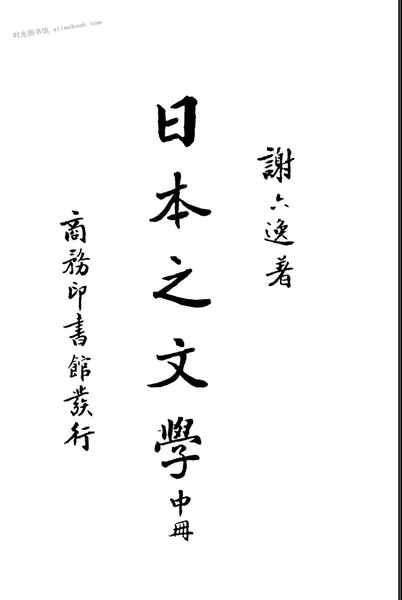 时光图书馆 etimebook.com
謝六逸著
日本之文學中冊
商務印書館發行